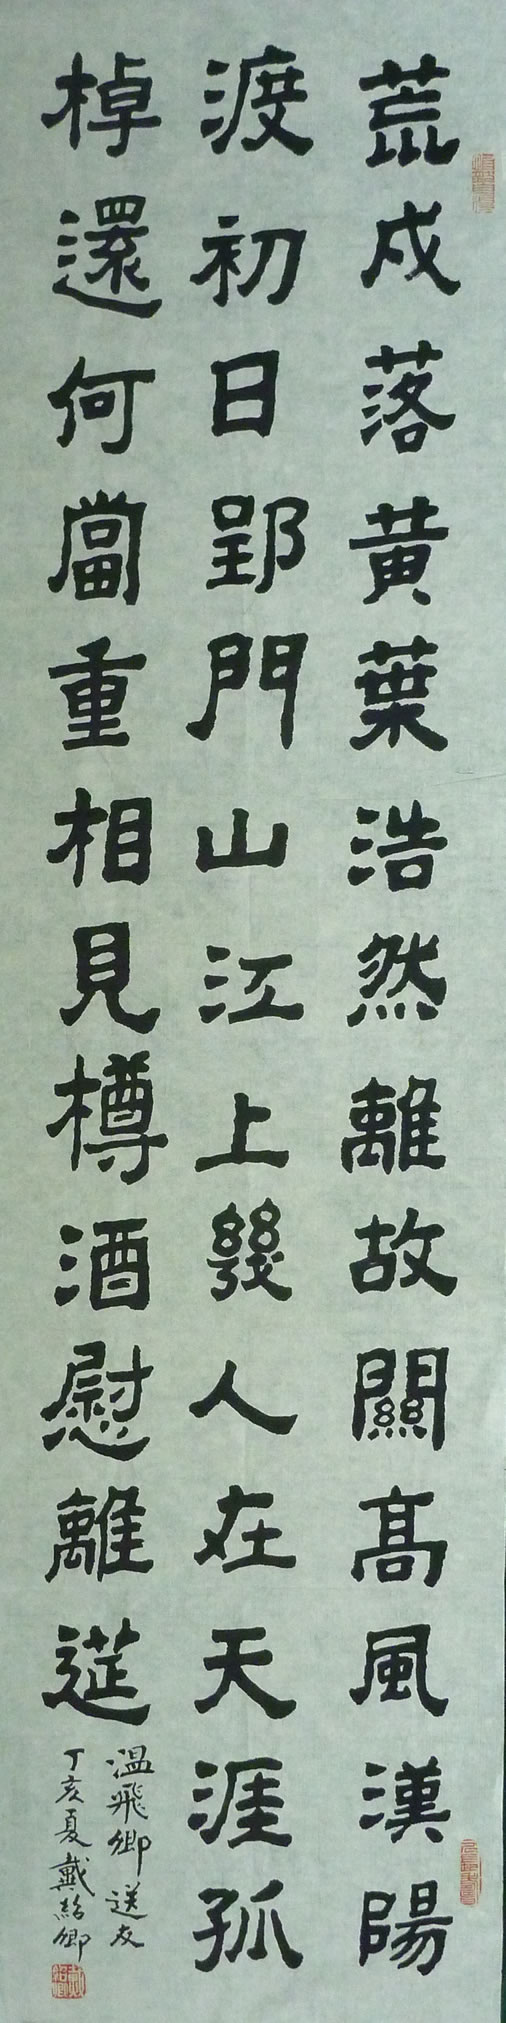 荒戍落黃葉浩然離故關高風漢陽
渡初日郢門山江上幾人在天涯孤
棹還何當重相見樽酒慰離莚
溫飛卿送友
丁亥夏戴紹卿